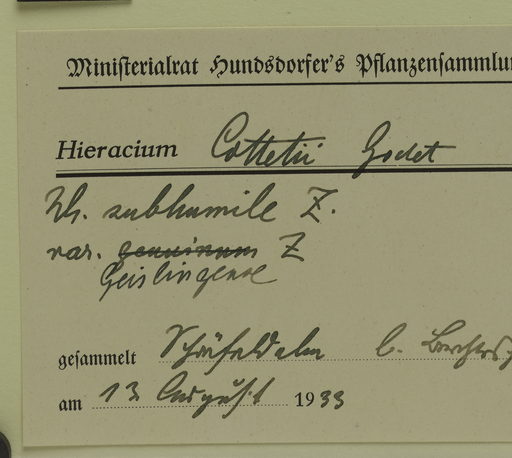 Ministerialrat Hundsdorfer's Pflanzensammlun
Hieracium Cottetii Godet
subhumile Z.
var. genuinum Z
Geislingense
gesammelt b.
am 13 August 1933